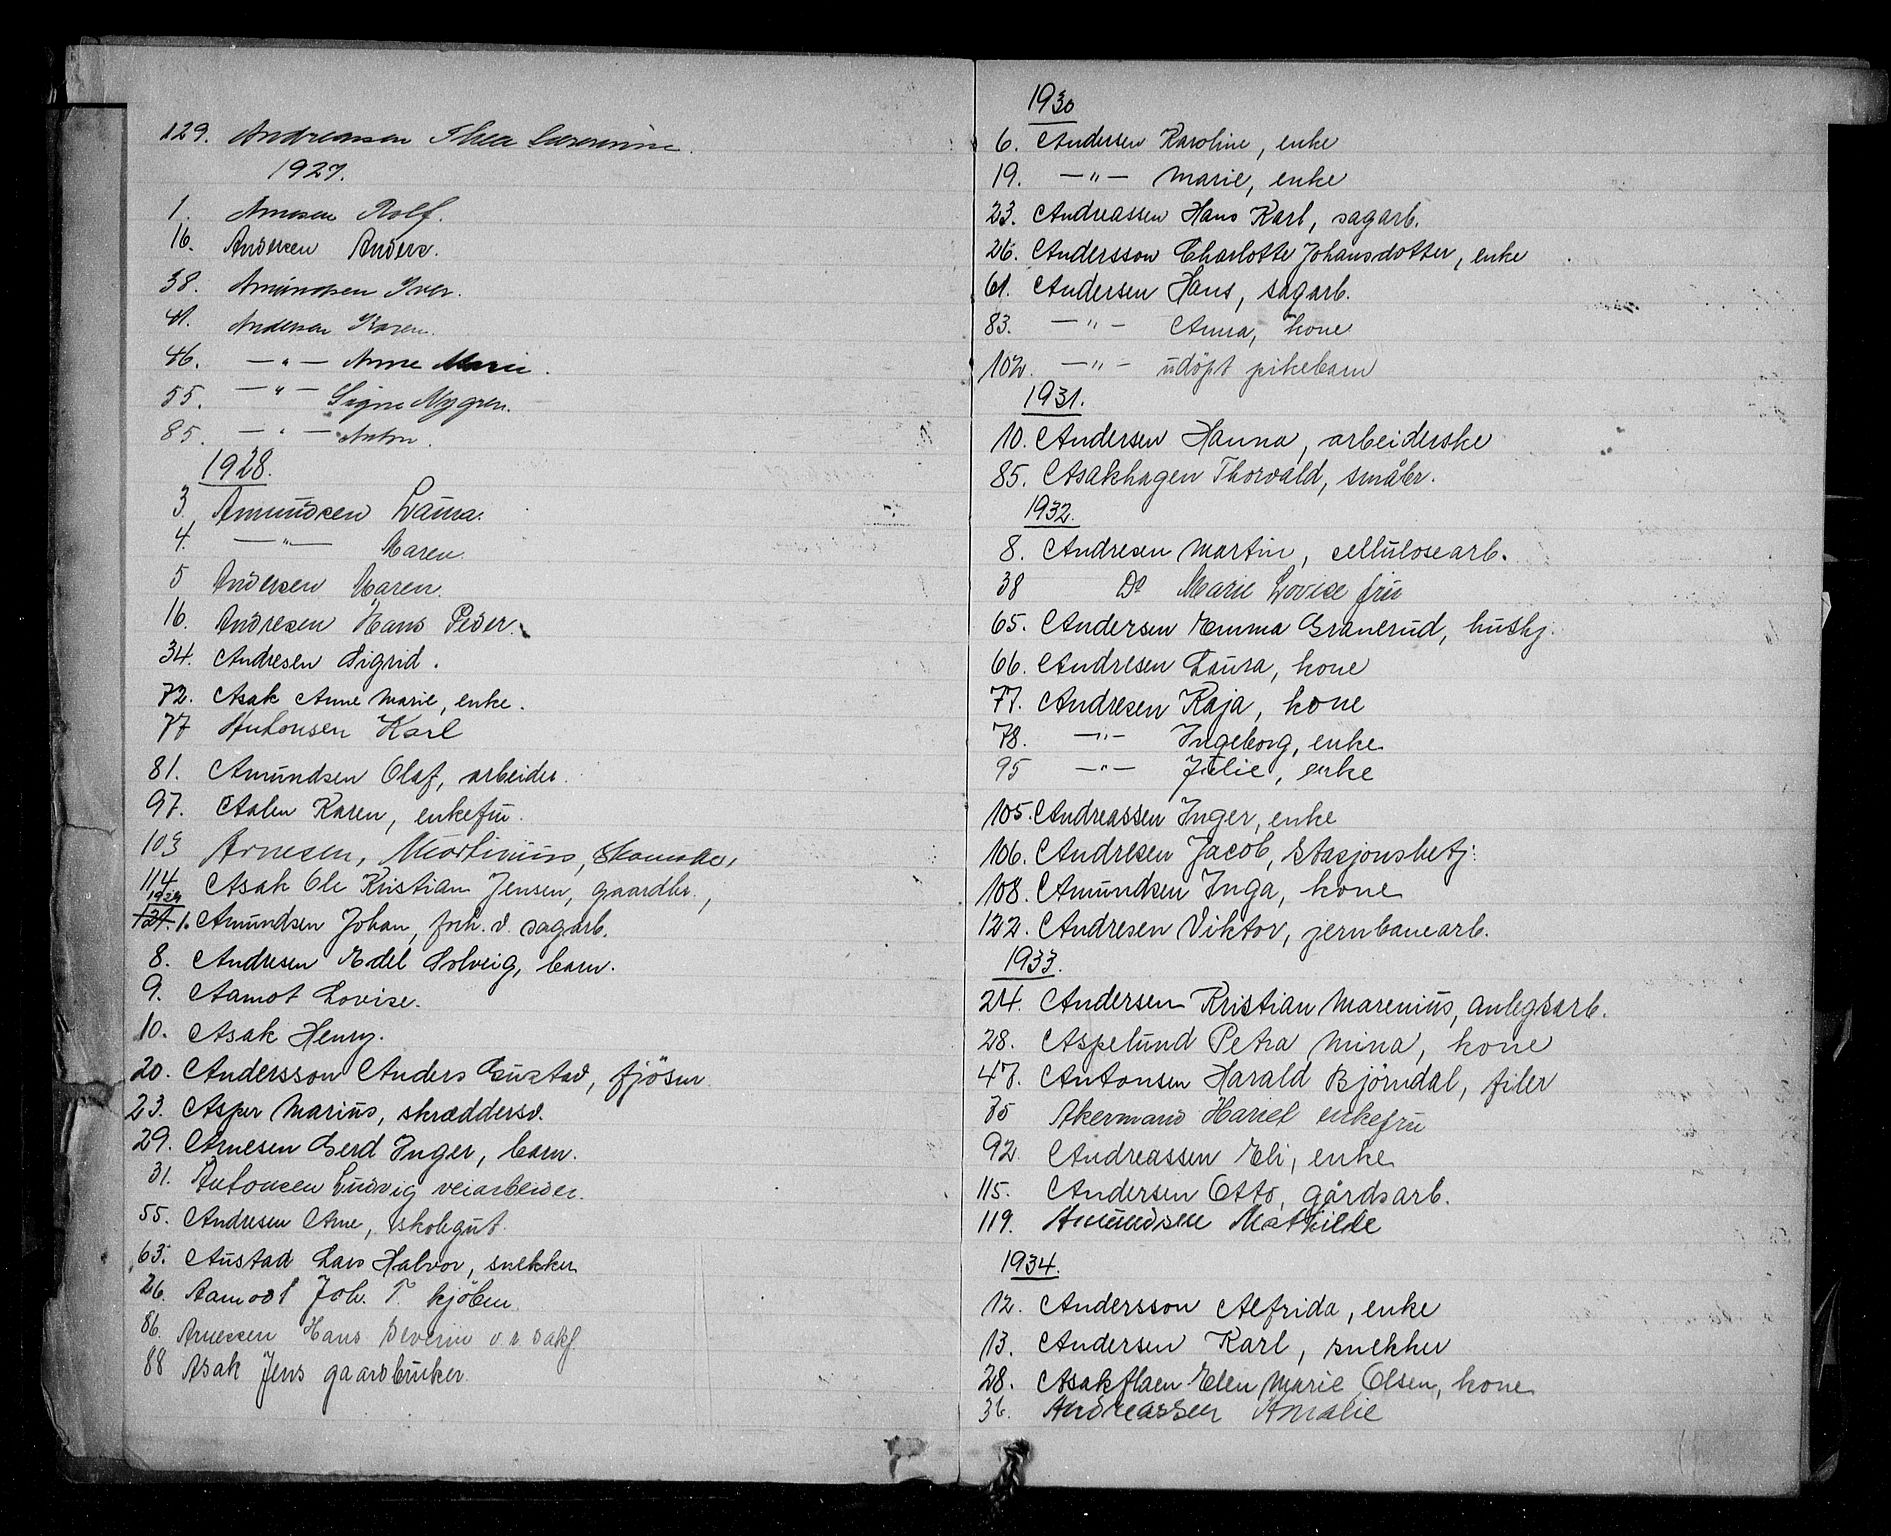 129. Andreassen Thea
1927.
1. Arnesen Rolf.
16. Andersen Anders.
38. Amundsen Iver.
41. Andersen Karen.
46. — " — Anne Marie.
55. — " — Signe Nygren.
85. — " — Anton.
1928.
3. Amundsen Laura.
4. — " — Maren.
5 Andersen Maren.
16. Andresen Hans Peder.
34. Andresen Sigrid.
72. Asak Anne Marie, enke.
77 Antonsen Karl
81. Amundsen Olaf, arbeider.
97. Aalen Karen, enkefru.
103 Arnesen, Martinius,
114 Asak Ole Kristian Jensen, gaardbr.,
1929
121. 1. Amundsen Johan, forh. v. sagarb.
8. Andresen Edel Solveig, barn.
9. Aamot Lovise.
10. Asak Henry.
20. Andersson Anders Gustav, fjösm
23. Asper Marius, skræddersv.
29. Arnesen Gerd Inger, barn.
31. Antonsen Ludvig veiarbeider.
55. Andresen Arne, skolegut.
63. Austad Lars Halvor, snekker
26. Aamodt Joh. T. kjöbm.
86. Arnessen Hans Severin
88 Asak Jens gaardbruker.
1930
6. Andersen Karoline, enke
19. — " — Marie, enke
23. Andreassen Hans Karl, sagarb.
26. Andersson Charlotte Johansdotter, enke
61. Andersen Hans, sagarb.
83. — " — Anna, kone
102. — " — udöpt pikebarn
1931.
10. Andersen Hanna, arbeiderske
85. Asakhagen Thorvald, småbr.
1932.
8. Andresen Martin, cellulosearb.
38 Do Marie Lovise fru
65. Andersen Emma Granerud, hushj.
66. Andresen Laura, kone
77. Andresen Kaja, kone
78. — " — Ingeborg, enke
95 — " — Julie, enke
105. Andreassen Inger, enke
106. Andresen Jacob, stasjonsbetj.
108. Amundsen Inga, kone
122. Andresen Viktor, jernbanearb.
1933.
24. Andersen Kristian Marenius, anlegsarb.
28. Aspelund Petra Mina, kone
47. Antonsen Harald Björndal, filer
85 Akermand Hariet enkefru
92 Andreassen Eli, enke
115. Andersen Otto, gårdsarb.
119. Amundsen Mathilde
1934.
12. Andersson Alfrida, enke
13. Andersen Karl, snekker
28. Asakflaen Elen Marie Olsen, kone
36. Andreassen Amalie